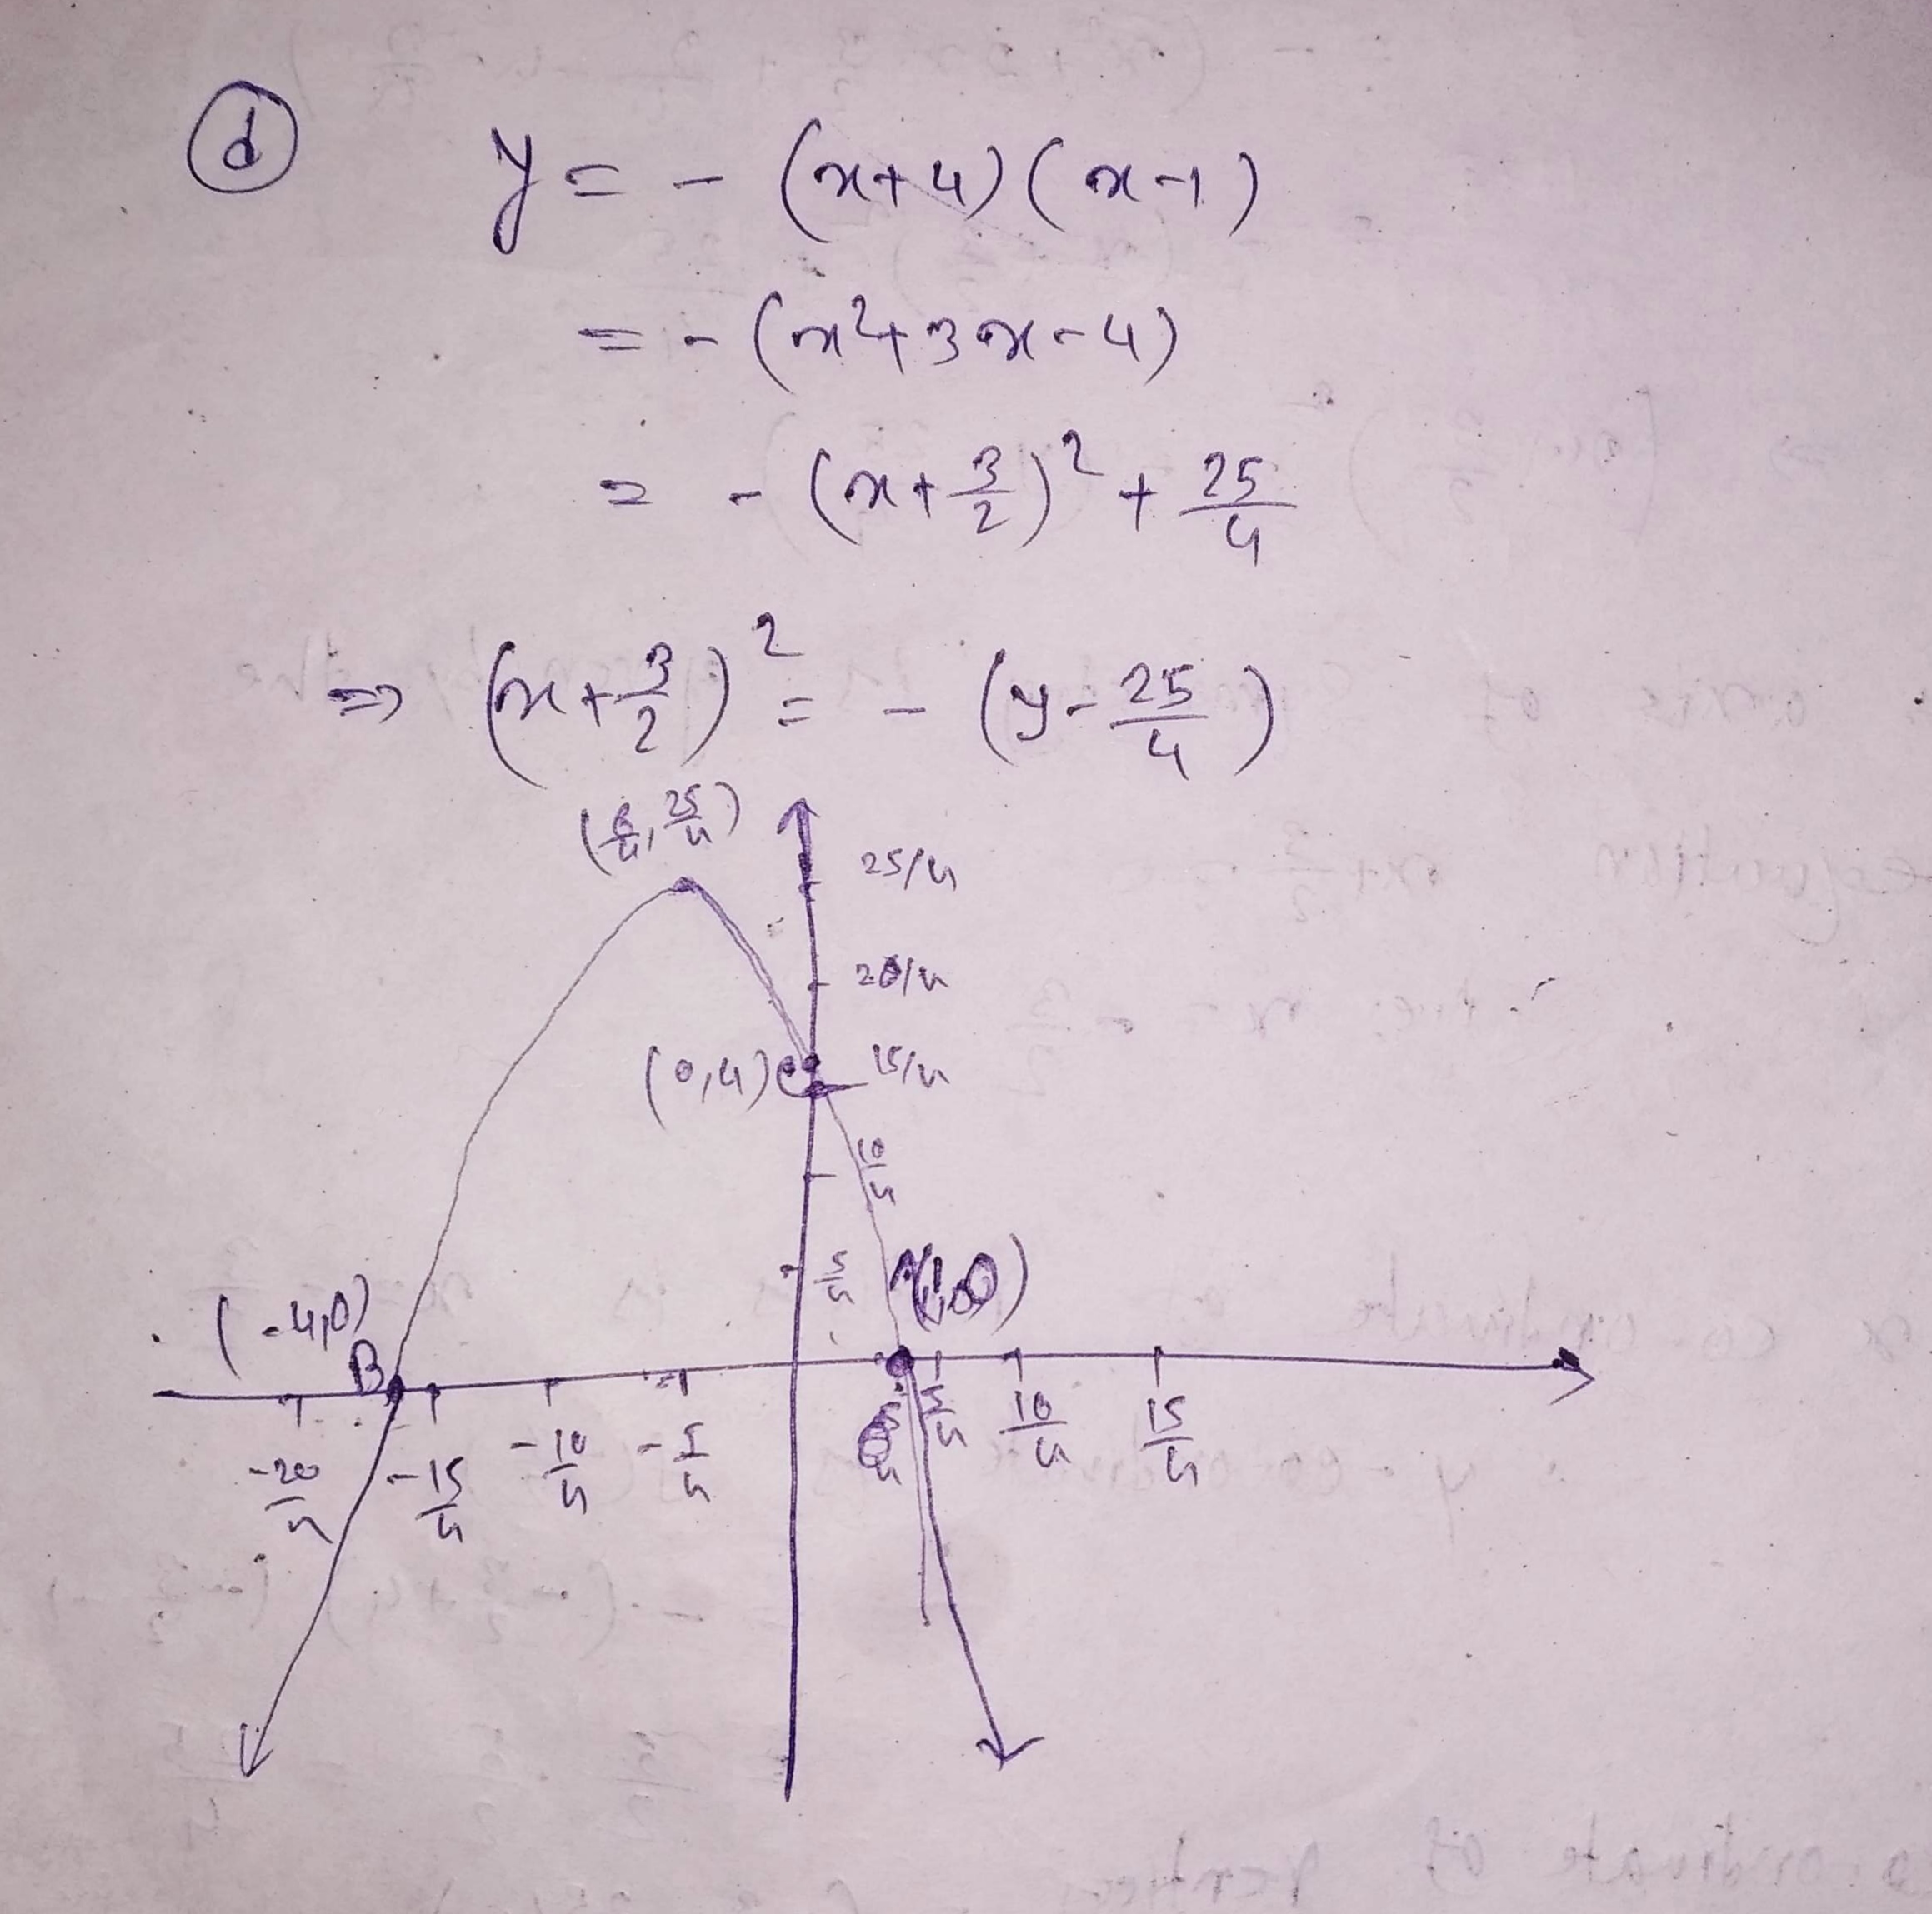 (d) y = - (x+4)(x-1)
= - (x²+3x-4)
= - (x+3/2)² + 25/4
⇒ (x+3/2)² = - (y-25/4)
25/4
20/4
(0,4) 15/4
10/4
5/4
(-4,0) (1,0)
B
-20/4 -15/4 -10/4 -5/4 5/4 10/4 15/4